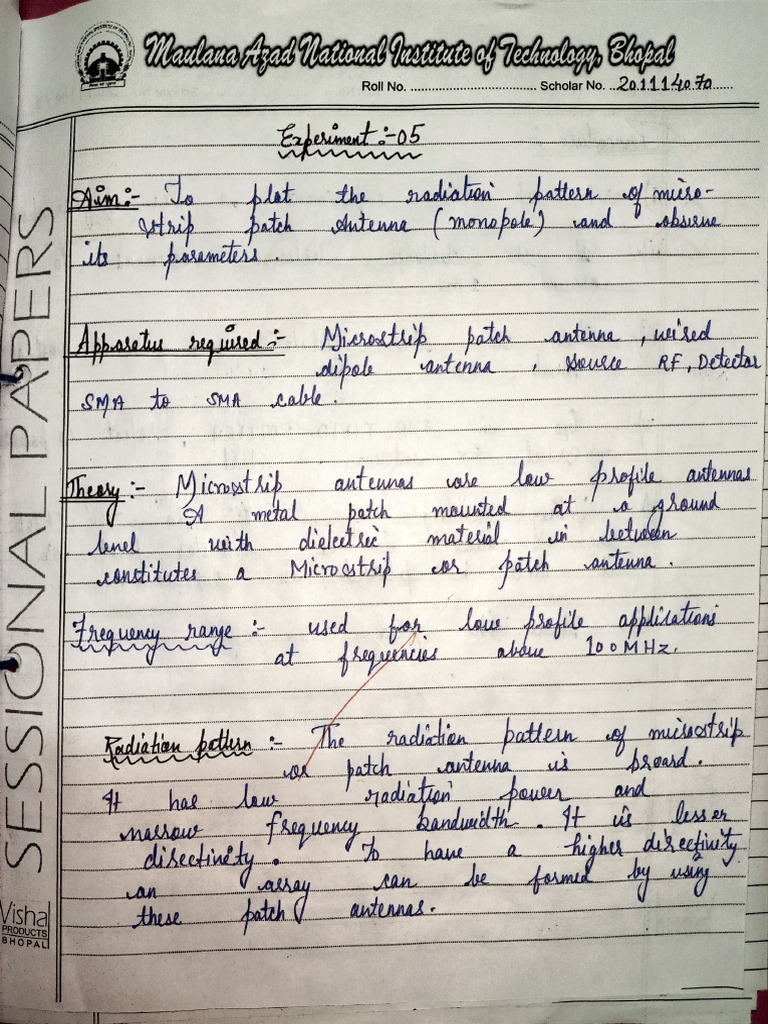 Maulana Azad National Institute of Technology, Bhopal
Roll No. ........................................ Scholar No. ..201114070......
Experiment :- 05
Aim:- To plot the radiation pattern of micro-
strip patch Antenna (monopole) and observe
its parameters.
Apparatus required :- Microstrip patch antenna, wired
dipole antenna, source RF, Detector
SMA to SMA cable.
Theory :- Microstrip antennas are low profile antennas
A metal patch mounted at a ground
level with dielectric material in between
constitutes a Microstrip or patch antenna.
Frequency range :- used for low profile applications
at frequencies above 100MHz.
Radiation pattern :- The radiation pattern of microstrip
or patch antenna is broard.
It has low radiation power and
narrow frequency bandwidth. It is lesser
directivity. To have a higher directivity
an array can be formed by using
these patch antennas.
SESSIONAL PAPERS
Vishal
PRODUCTS
BHOPAL